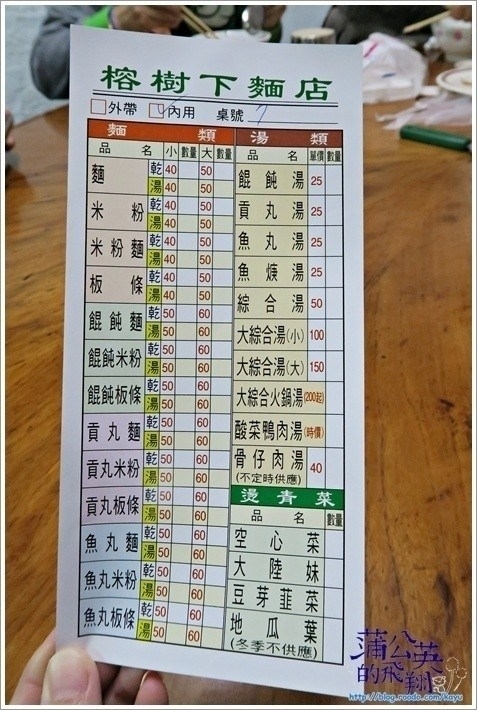 榕樹下麵店
□外帶 □內用 桌號 7
麵類
品名 小 數量 大 數量
麵 乾 40 50
湯 40 50
米粉 乾 40 50
湯 40 50
米粉麵 乾 40 50
湯 40 50
板條 乾 40 50
湯 40 50
餛飩麵 乾 50 60
湯 50 60
餛飩米粉 乾 50 60
湯 50 60
餛飩板條 乾 50 60
湯 50 60
貢丸麵 乾 50 60
湯 50 60
貢丸米粉 乾 50 60
湯 50 60
貢丸板條 乾 50 60
湯 50 60
魚丸麵 乾 50 60
湯 50 60
魚丸米粉 乾 50 60
湯 50 60
魚丸板條 乾 50 60
湯 50 60
湯類
品名 單價 數量
餛飩湯 25
貢丸湯 25
魚丸湯 25
魚焿湯 25
綜合湯 50
大綜合湯(小) 100
大綜合湯(大) 150
大綜合火鍋湯(200起)
酸菜鴨肉湯(時價)
骨仔肉湯 40
(不定時供應)
燙青菜
品名 數量
空心菜
大陸妹
豆芽韮菜
地瓜葉
(冬季不供應)
蒲公英
的飛翔
http://blog.roodo.com/kayu